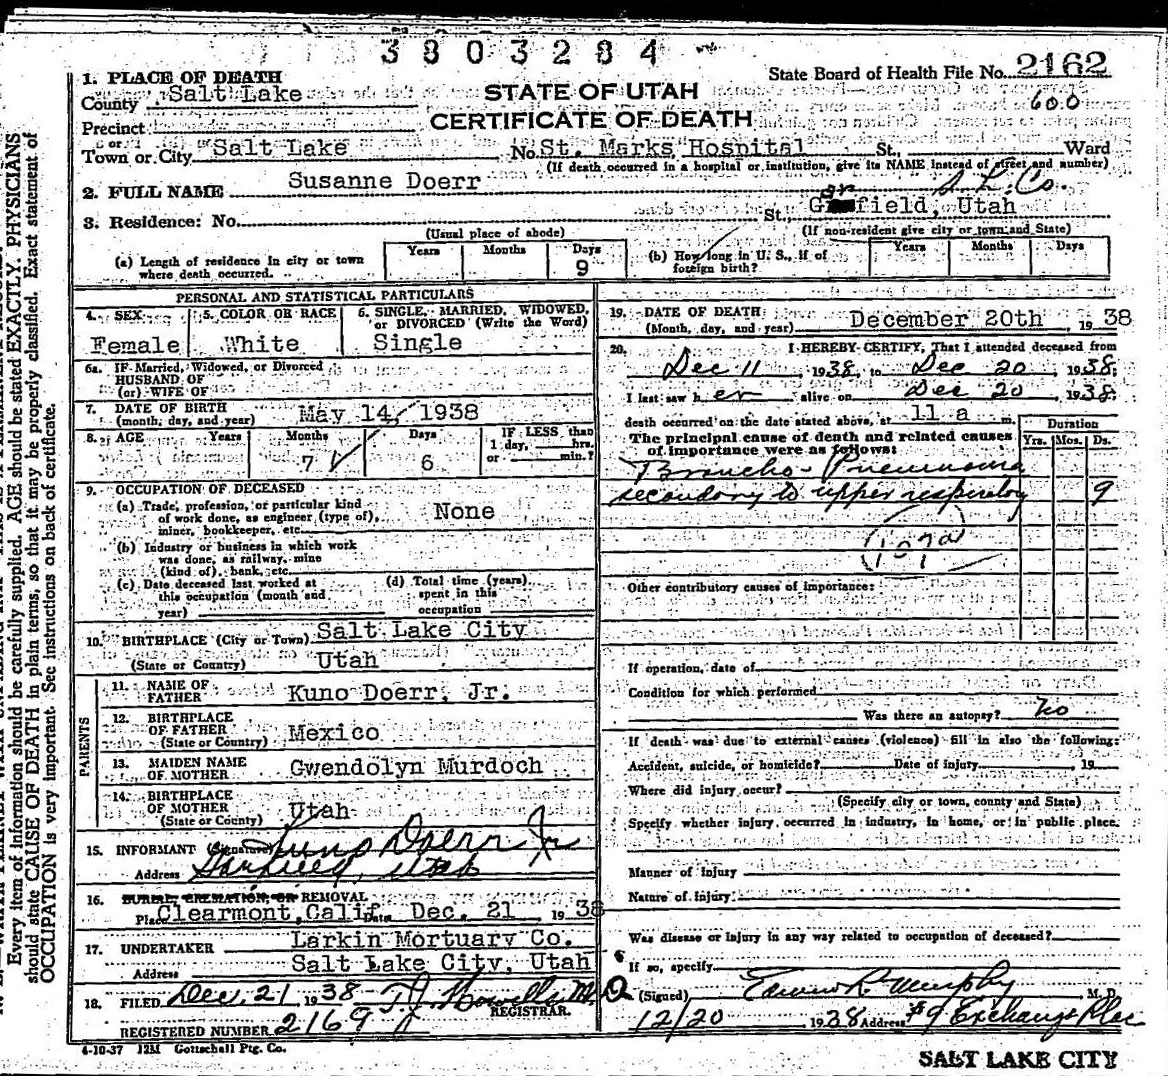 3803284
State Board of Health File No. 2162
600
STATE OF UTAH
CERTIFICATE OF DEATH
1. PLACE OF DEATH
County Salt Lake
Precinct
or
Town or City Salt Lake No. St. Marks Hospital St., Ward
(If death occurred in a hospital or institution, give its NAME instead of street and number)
2. FULL NAME Susanne Doerr
S. L. Co.
3. Residence: No. St. Garfield, Utah
(Usual place of abode) (If non-resident give city or town and State)
(a) Length of residence in city or town where death occurred. Years Months Days 9
(b) How long in U. S., if of foreign birth? Years Months Days
PERSONAL AND STATISTICAL PARTICULARS
4. SEX Female
5. COLOR OR RACE White
6. SINGLE, MARRIED, WIDOWED, or DIVORCED (Write the Word) Single
6a. IF Married, Widowed, or Divorced
HUSBAND OF
(or) WIFE OF
7. DATE OF BIRTH
(month, day, and year) May 14, 1938
8. AGE Years Months 7 Days 6 IF LESS than 1 day, hrs. or min.?
9. OCCUPATION OF DECEASED
(a) Trade, profession, or particular kind
of work done, as engineer (type of),
miner, bookkeeper, etc. None
(b) Industry or business in which work
was done, as railway, mine
(kind of), bank, etc.
(c) Date deceased last worked at
this occupation (month and
year)
(d) Total time (years)
spent in this
occupation
10. BIRTHPLACE (City or Town) Salt Lake City
(State or Country) Utah
PARENTS
11. NAME OF
FATHER Kuno Doerr, Jr.
12. BIRTHPLACE
OF FATHER
(State or Country) Mexico
13. MAIDEN NAME
OF MOTHER Gwendolyn Murdoch
14. BIRTHPLACE
OF MOTHER
(State or County) Utah
15. INFORMANT (Signature) Kuno Doerr Jr
Address Garfield, Utah
16. BURIAL, CREMATION, OR REMOVAL
Place Clearmont, Calif. Date Dec. 21, 1938
17. UNDERTAKER Larkin Mortuary Co.
Address Salt Lake City, Utah
18. FILED Dec. 21 1938 T. J. Howells M.D.
REGISTRAR.
REGISTERED NUMBER 2169
19. DATE OF DEATH
(Month, day, and year) December 20th 1938
20. I HEREBY CERTIFY, That I attended deceased from
Dec 11, 1938, to Dec 20, 1938;
I last saw her alive on Dec 20, 1938;
death occurred on the date stated above, at 11 a m.
The principal cause of death and related causes
of importance were as follows:
Duration
Yrs. Mos. Ds.
Broncho-Pneumonia
secondary to upper respiratory 9
(107a)
Other contributory causes of importance:
If operation, date of
Condition for which performed
Was there an autopsy? No
If death was due to external causes (violence) fill in also the following:
Accident, suicide, or homicide? Date of injury, 19
Where did injury occur?
(Specify city or town, county and State)
Specify whether injury occurred in industry, in home, or in public place.
Manner of injury
Nature of injury
Was disease or injury in any way related to occupation of deceased?
If so, specify
(Signed) R. Murphy M. D.
12/20 1938 Address #9 Exchange Place
4-10-37 12M Gottschall Ptg. Co.
SALT LAKE CITY
Every item of information should be carefully supplied. AGE should be stated EXACTLY. PHYSICIANS
should state CAUSE OF DEATH in plain terms, so that it may be properly classified. Exact statement of
OCCUPATION is very important. See instructions on back of certificate.